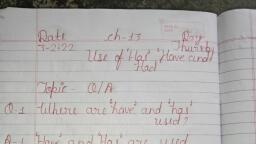 Date ch-13 Day
7-2-22 Thursday
Use of 'Has' 'Have and
Had
Topic - Q/A
Q-1 Where are 'have' and 'has'
used?
A-1 'Have' and 'Has' are used